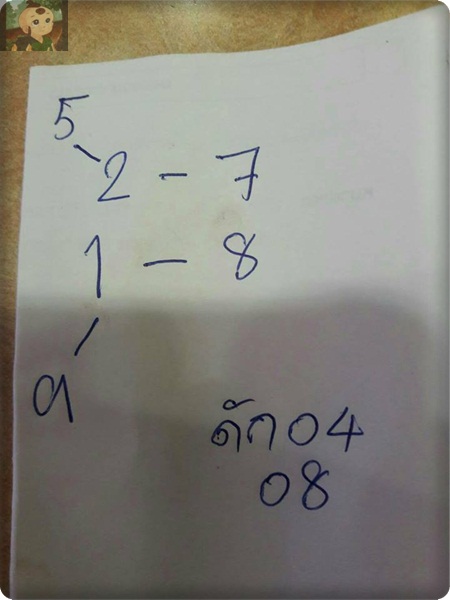 5
2 - 7
1 - 8
9
ดัก 04
08